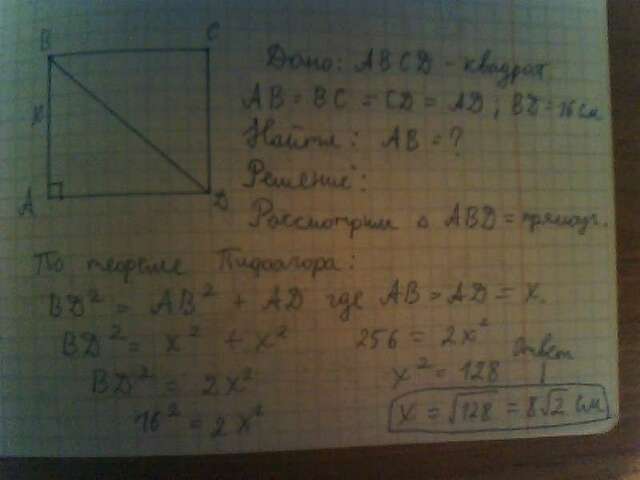 B C
x
A D
Дано: ABCD - квадрат
AB = BC = CD = AD; BD = 16 см
Найти: AB = ?
Решение:
Рассмотрим △ ABD = прямоуг.
По теореме Пифагора:
BD² = AB² + AD где AB = AD = x.
BD² = x² + x²
BD² = 2x²
16² = 2x²
256 = 2x²
x² = 128
Ответ
x = √128 = 8√2 см